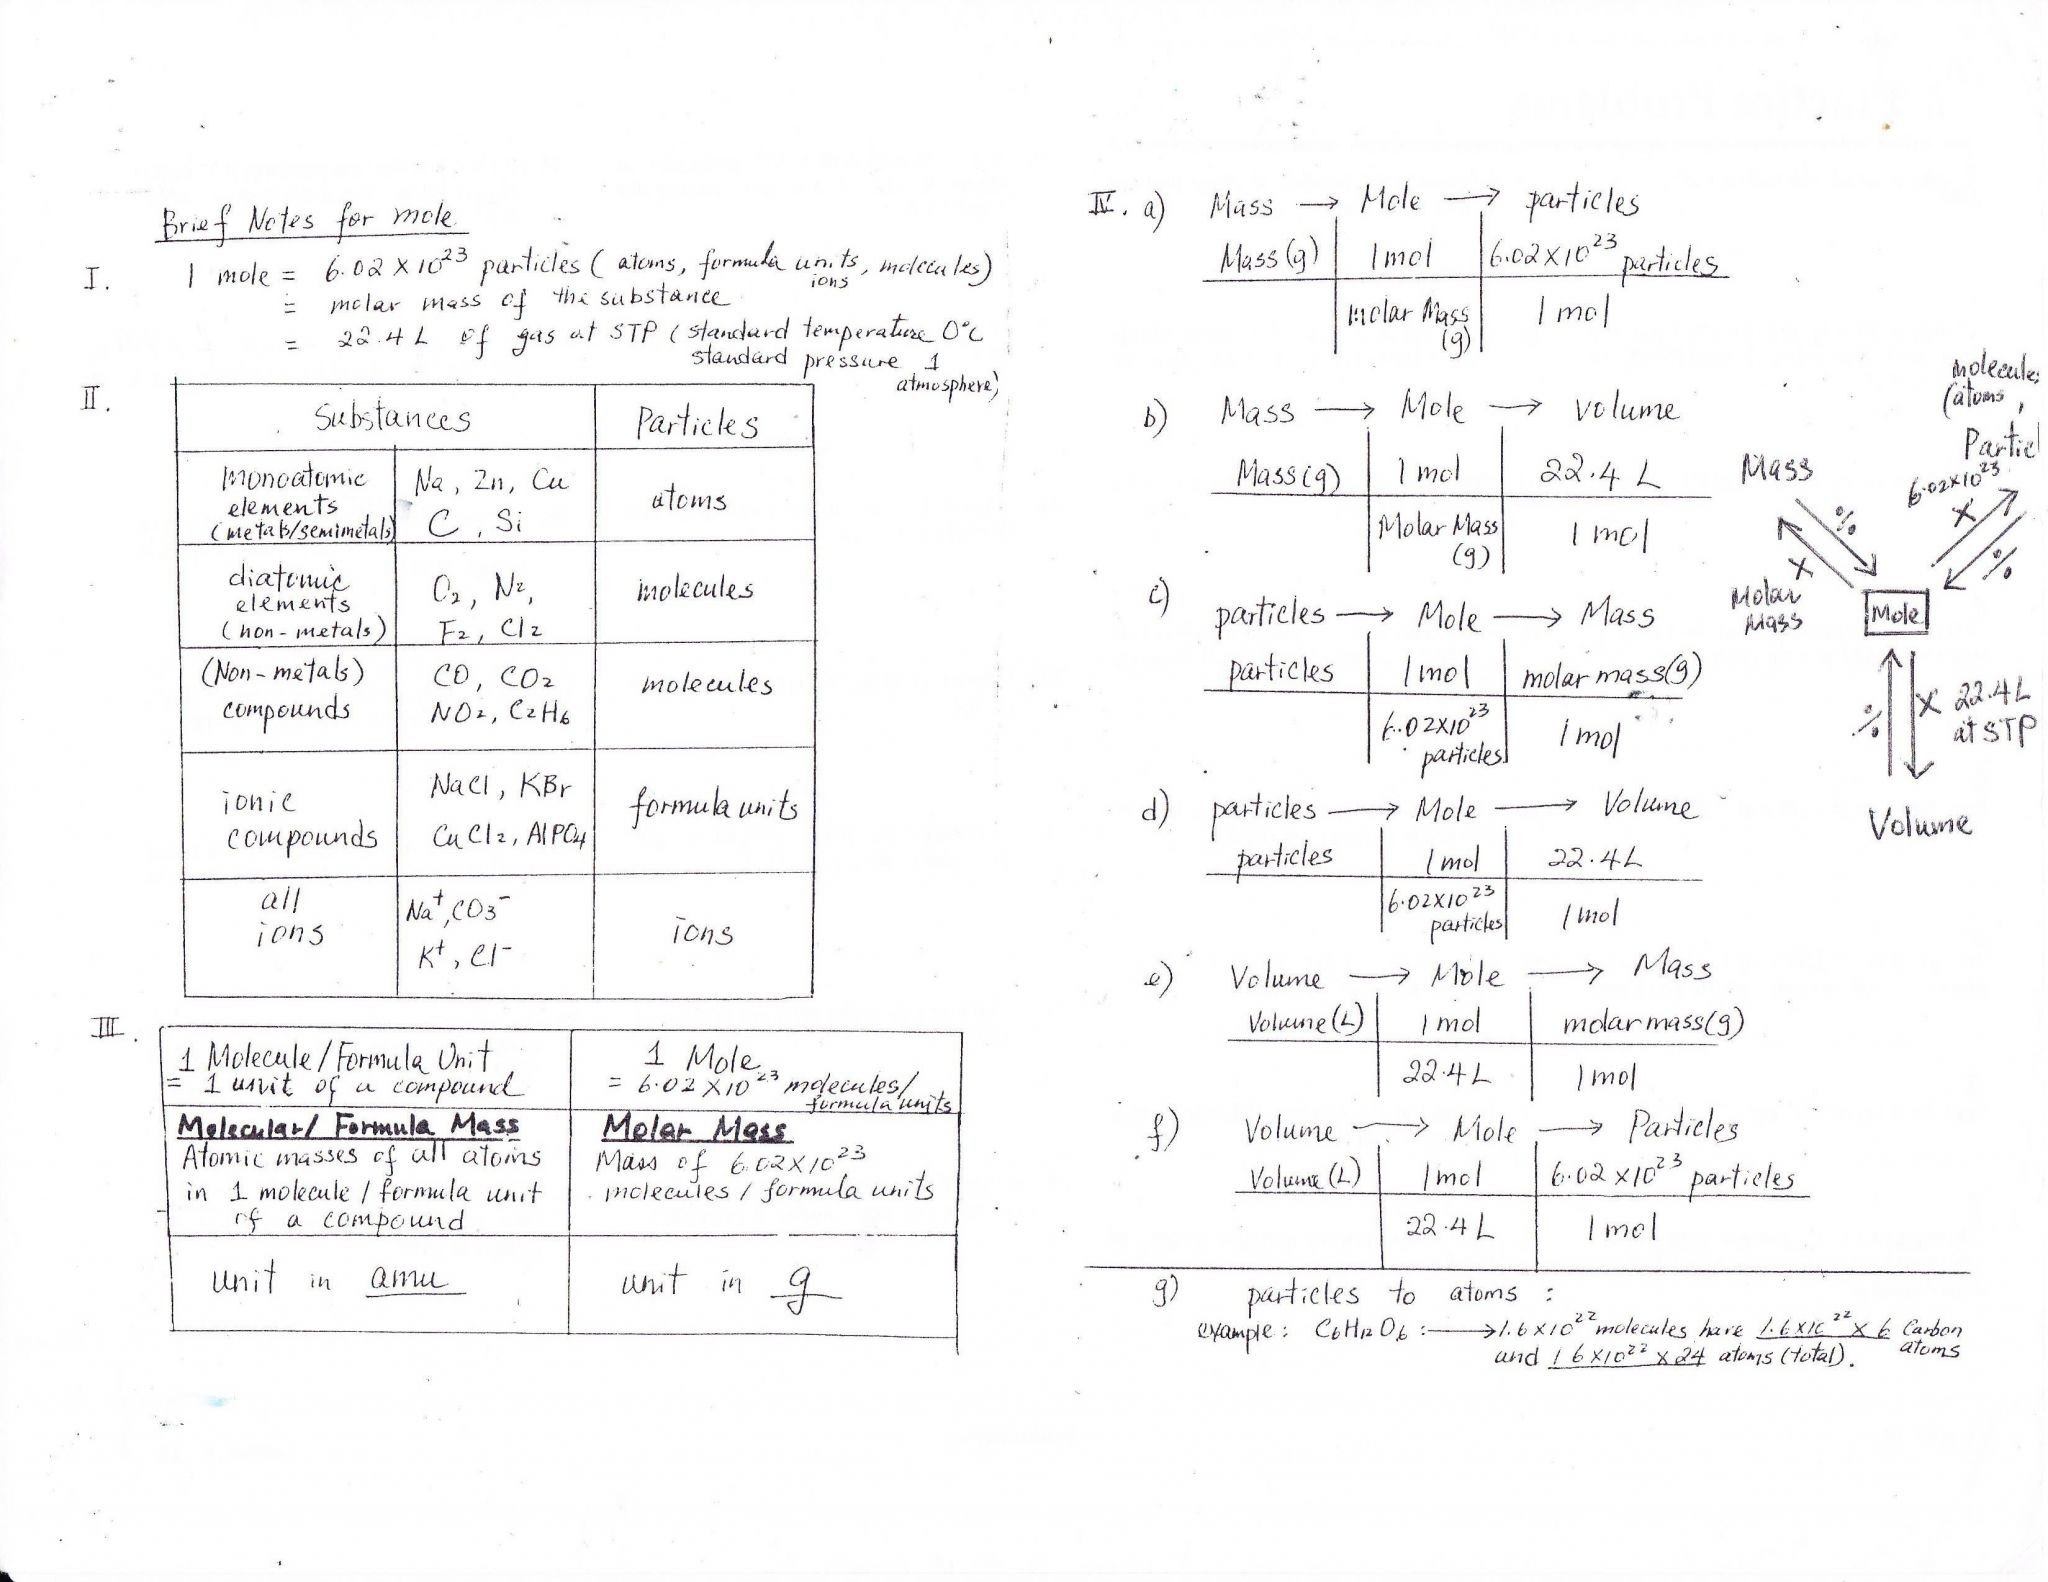 Brief Notes for mole
I. 1 mole = 6.02 × 10²³ particles (atoms, formula units, molecules)
ions
= molar mass of the substance
= 22.4 L of gas at STP (standard temperature 0°C
standard pressure 1
atmosphere)
II.
Substances Particles
monoatomic elements (metals/semimetals) Na, Zn, Cu
C, Si
atoms
diatomic elements (non-metals) O₂, N₂,
F₂, Cl₂
molecules
(Non-metals) compounds CO, CO₂
NO₂, C₂H₆
molecules
ionic compounds NaCl, KBr
CuCl₂, AlPO₄
formula units
all ions Na⁺, CO₃⁻
K⁺, Cl⁻
ions
III.
1 Molecule/Formula Unit
= 1 unit of a compound
1 Mole
= 6.02 × 10²³ molecules/
formula units
Molecular/ Formula Mass
Atomic masses of all atoms
in 1 molecule / formula unit
of a compound
Molar Mass
Mass of 6.02 × 10²³
molecules / formula units
unit in amu
unit in g
IV. a) Mass → Mole → particles
Mass (g) 1 mol 6.02 × 10²³ particles
molar Mass (g) 1 mol
b) Mass → Mole → volume
Mass (g) 1 mol 22.4 L
Molar Mass (g) 1 mol
c) particles → Mole → Mass
particles 1 mol molar mass (g)
6.02 × 10²³ particles 1 mol
d) particles → Mole → Volume
particles 1 mol 22.4 L
6.02 × 10²³ particles 1 mol
e) Volume → Mole → Mass
Volume (L) 1 mol molar mass (g)
22.4 L 1 mol
f) Volume → Mole → Particles
Volume (L) 1 mol 6.02 × 10²³ particles
22.4 L 1 mol
g) particles to atoms :
example : C₆H₁₂O₆ : → 1.6 × 10²² molecules have 1.6 × 10²² × 6 Carbon
atoms
and 1.6 × 10²² × 24 atoms (total).
molecules
(atoms,
Particl
Mass
6.02×10²³
×
%
%
×
Molar
Mass
Mole
%
× 22.4 L
at STP
Volume